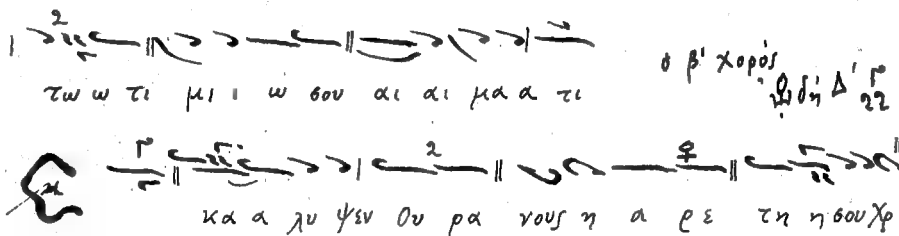 τω ω τι μι ι ω σου αι αι μα α τι
ο β' χορός
Ωδή Δ'
κα α λυ ψεν Ου ρα νους η α ρε τη η σου Χρ